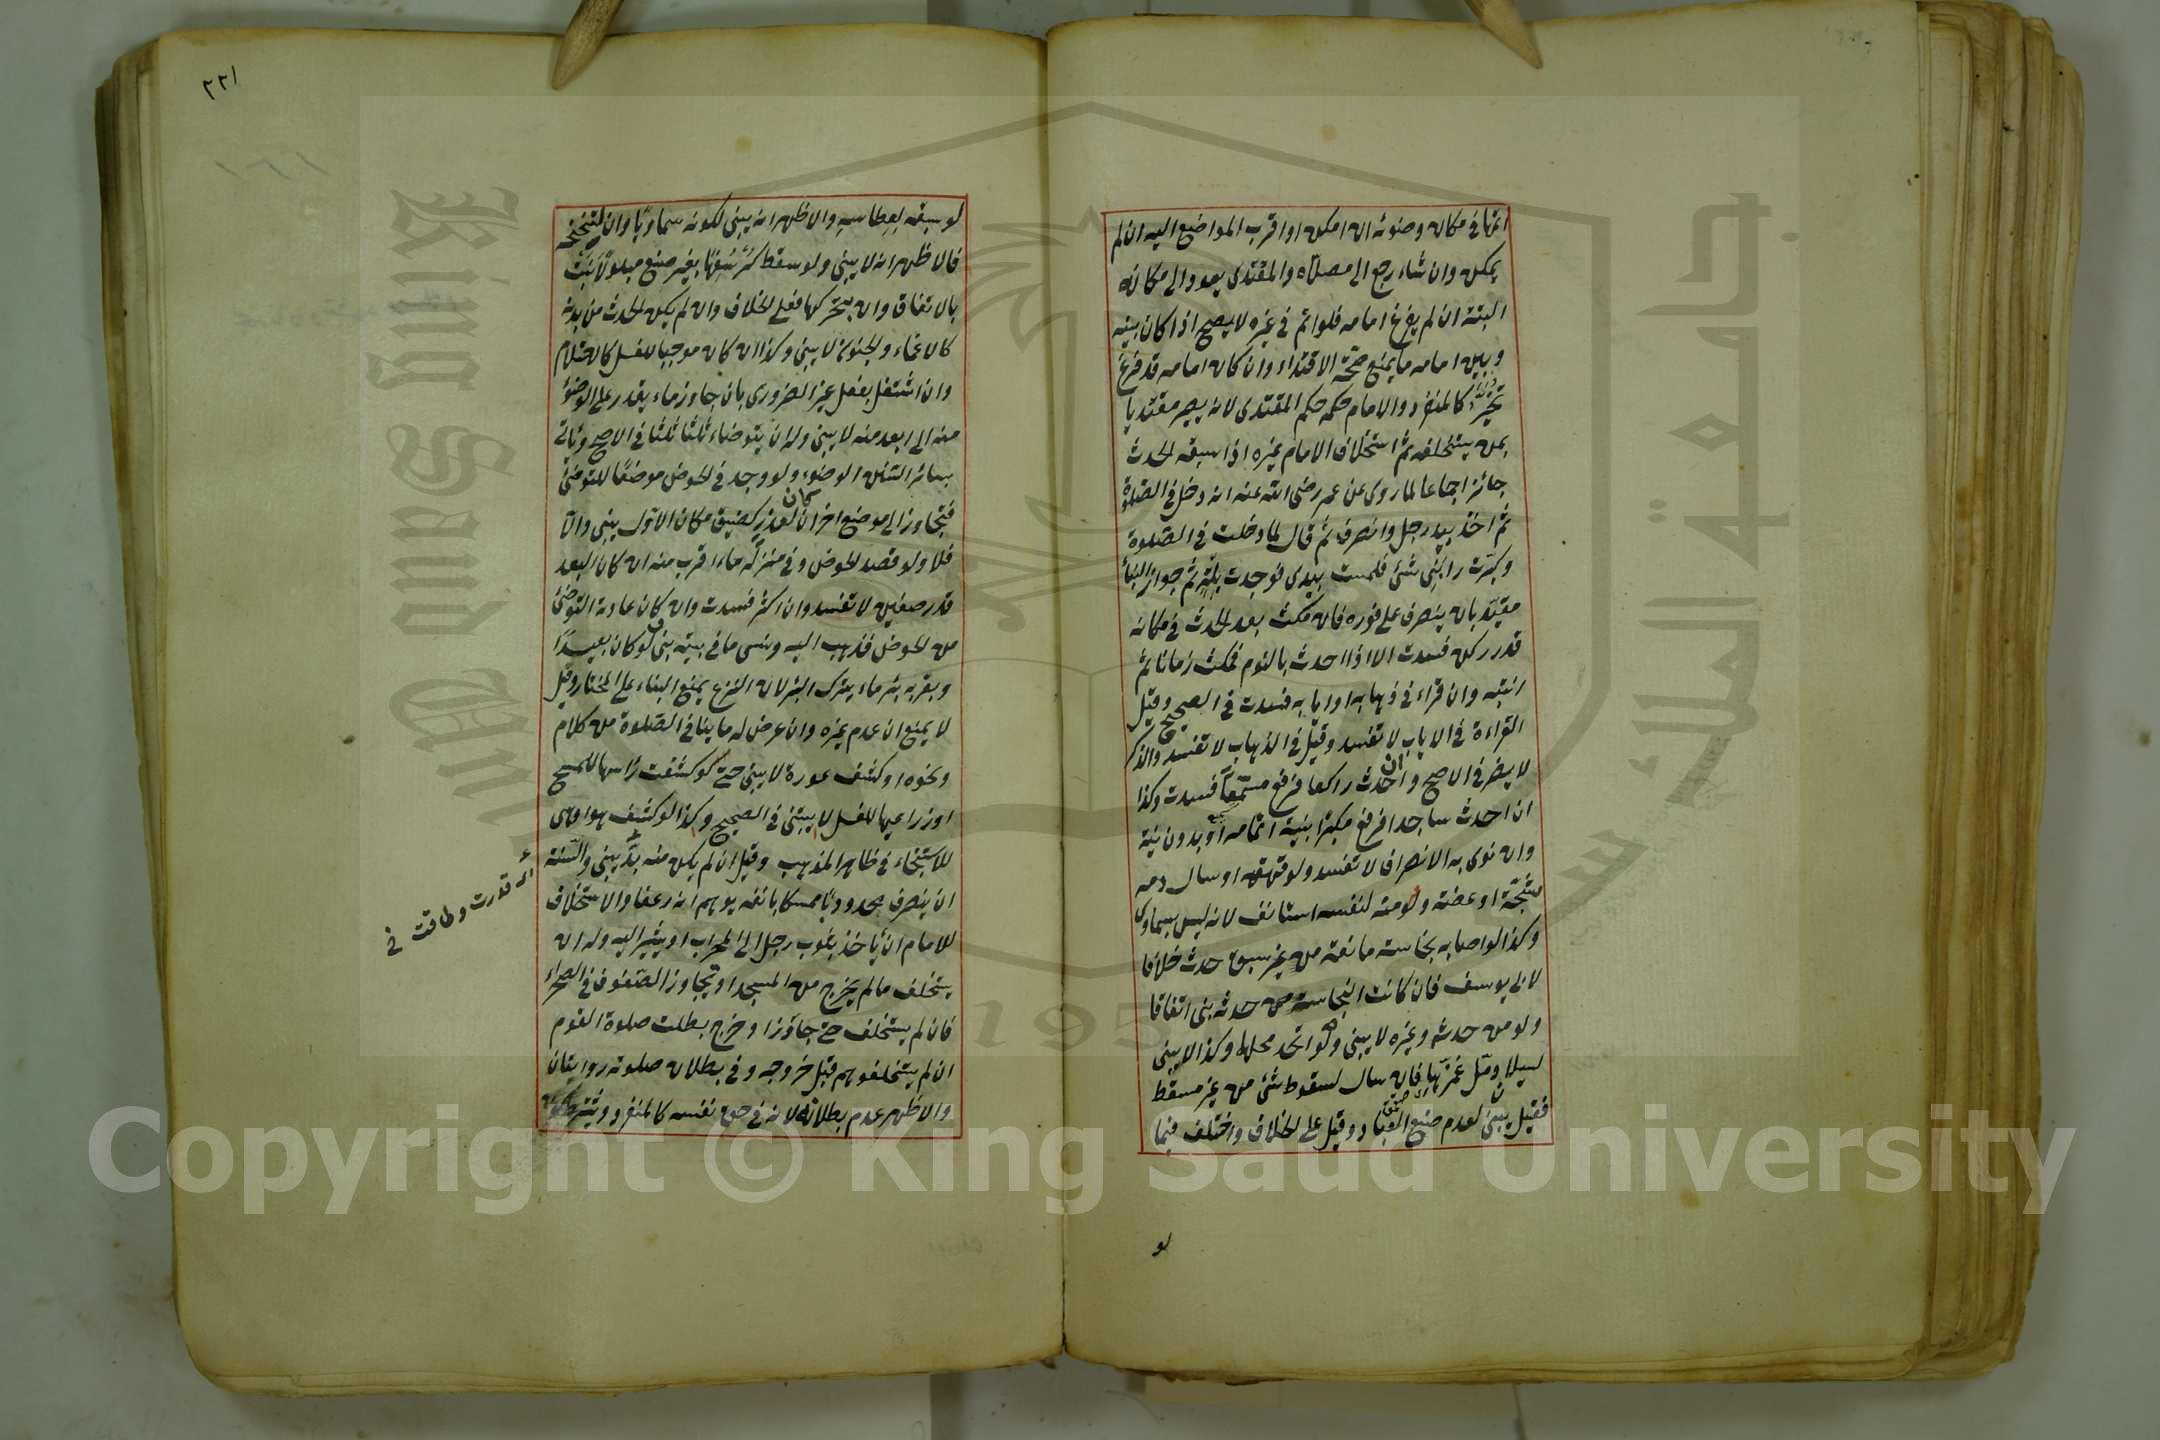 اتمها في مكان وضوئه ان امكن او اقرب المواضع اليه ان لم
يمكن وان شاء رجع الى مصلاه والمقتدى يعود الى مكانه
البتة ان لم يفرغ امامه فلو اتم في غيره لا يصح اذا كان بينه
وبين امامه ما يمنع صحة الاقتداء وان كان امامه قد فرغ
تخير كالمنفرد والامام حكمه حكم المقتدى لانه يصير مقتديا
بمن يستخلفه ثم استخلاف الامام غيره اذا سبقه الحدث
جائز اجماعا لما روى عن عمر رضى الله عنه انه دخل في الصلوة
ثم اخذ بيد رجل وانصرف ثم قال لما دخلت في الصلوة
وكبرت رابني شئ فلمست بيدى فوجدت بلة ثم جواز البناء
مقيد بان ينصرف على فوره فان مكث بعد الحدث في مكانه
قدر ركن فسدت الا اذا احدث بالنوم فمكث زمانا ثم
انتبه وان قراء في ذهابه او ايابه فسدت في الصحيح وقيل
القراءة في الاياب لا تفسد وقيل في الذهاب لا تفسد والذكر
لا يضر في الاصح وان احدث راكعا فرفع مسمعا فسدت وكذا
ان احدث ساجدا فرفع مكبرا بنية اتمامه او بدون نية
وان نوى به الانصراف لا تفسد ولو قهقه او سال دمه
بشجة او عضة ولو منه لنفسه استأنف لانه ليس بسماوى
وكذا لو اصابه نجاسة مانعة من غير سبق حدث خلافا
لابى يوسف فان كانت النجاسة من حدثه بنى اتفاقا
ولو من حدثه وغيره لا يبني ولو اتحد محلها وكذا لا يبنى
لسيلان دمل غمزها فان سال لسقوط شئ من غير مسقط
فقيل يبني لعدم صنع العباد وقيل على الخلاف واختلف فيما
لو
٢٢١
لو سبقه لعطاسه والاظهر انه يبنى لكونه سماويا وان لتنحنحه
فالاظهر انه لا يبنى ولو سقط كرسفها بغير صنع مبلولا بنت
بالاتفاق وان بتحركها فعلى الخلاف وان لم يكن الحدث من بدنه
كالاغماء والجنون لا يبنى وكذا ان كان موجبا للغسل كالاحتلام
وان اشتغل بفعل غير الضرورى بان جاوز ماء يقدر على الوضوء
منه الى ابعد منه لا يبنى وله ان يتوضاء ثلثا ثلثا في الاصح وياتى
بسائر السنن الوضوء ولو وجد في الحوض موضعا للتوضئ
فتجاوز الى موضع اخر ان كان لعذر كضيق مكان الاول يبنى والا
فلا ولو قصد الحوض وفي منزله ماء اقرب منه ان كان البعد
قدر صفين لا تفسد وان اكثر فسدت وان كان عادته التوضئ
من الحوض فذهب اليه ونسى ما في بيته بنى ولو كان بعيدا
وبقربه بئر ماء يترك البئر لان النزع يمنع البناء على المختار وقيل
لا يمنع ان عدم غيره وان عرض له ما ينافى الصلوة من كلام
ونحوه او كشف عورة لا يبنى حتى لو كشفت رأسها للمسح
او ذراعيها للغسل لا يبتنى في الصحيح وكذا لو كشف هو او هى
للاستنجاء في ظاهر المذهب وقيل ان لم يكن منه بد يبنى والسنة
ان ينصرف محدودبا ممسكا بانفه يوهم انه رعف والاستخلاف
للامام ان يأخذ بثوب رجل الى المحراب او يشير اليه وله ان
يستخلف ما لم يخرج من المسجد او يتجاوز الصفوف في الصحراء
فان لم يستخلف حتى جاوز او خرج بطلت صلوة القوم
ان لم يستخلفوهم قبل خروجه وفي بطلان صلوته روايتان
والاظهر عدم بطلانه لانه في حق نفسه كالمنفرد ويشترط
قدرت وطاقت
Copyright © King Saud University
King Saud University
جامعة الملك سعود